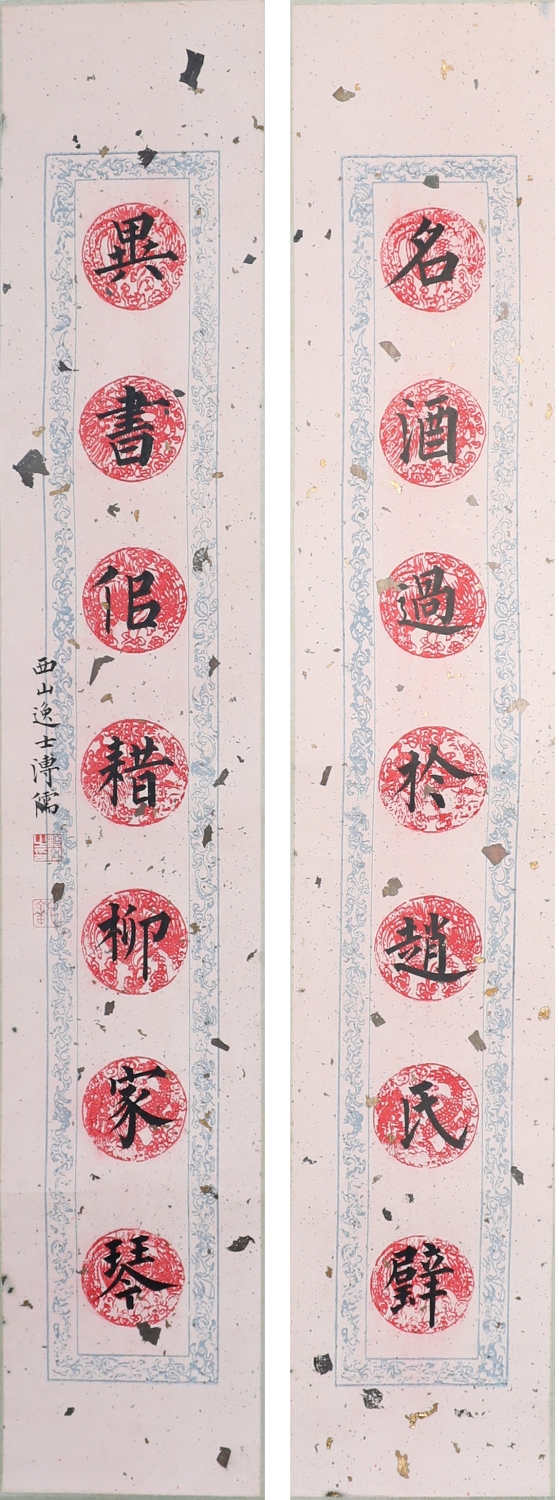 名酒過於趙氏璧
異書佀耤柳家琴
西山逸士溥儒